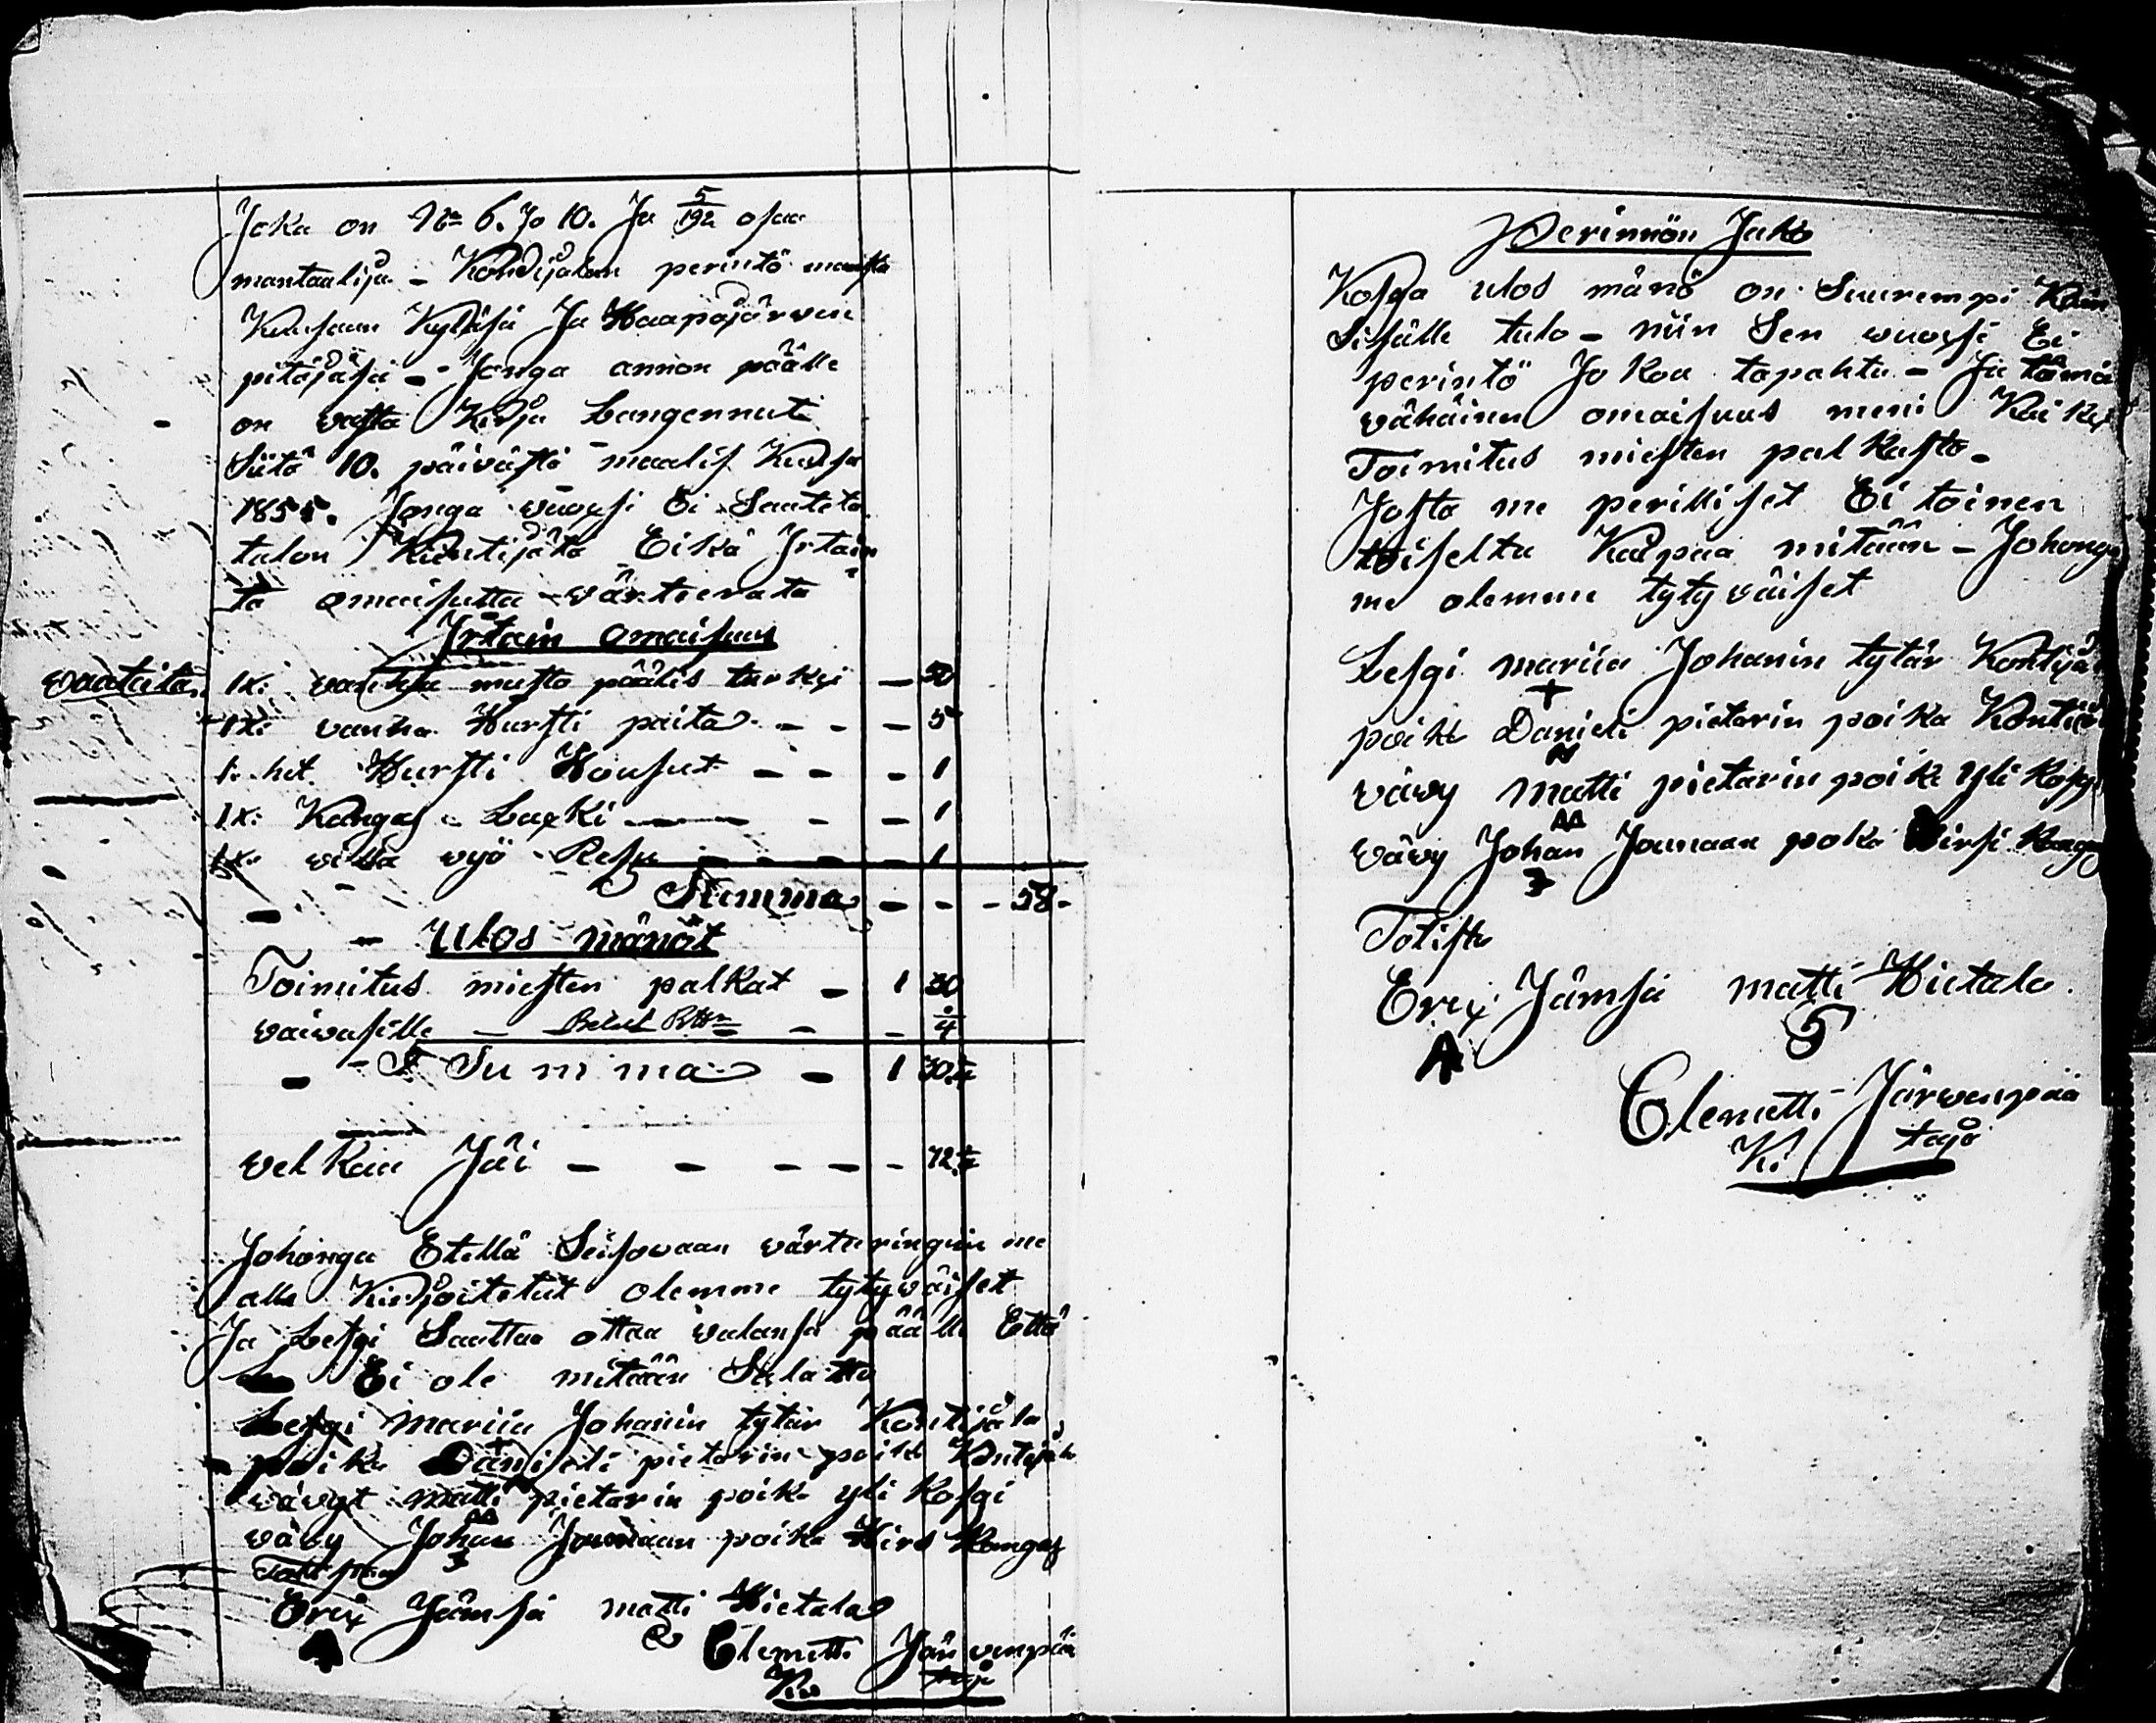 Joka on No 6. Jo 10. Ja 5/192 osaa
mantaalija - Kondijalan perintö maasta
Kylässä Ja Haapajärven
pitäjäsä - Jonga annon päälle
on vasta Kirja Langennut
Siitä 10. päivästä maalis Kuusa
1855. Jonga vuoxsi Ei Saateta
talon Kiintijätä Eikä Irtain
ta omaisutta värteerata
Irtain omaisuus
vaateita 1x: vanha musta päälis turkxi - 50
1x: vanha Hursti paita - - - 5
1. het Hursti Housut - - - 1
1x: Kangas Lakki - - - 1
1x: villa vyö - - - 1
Summa - - - 58 -
Ulos mänöt
Toimitus miesten palkat - 1 30
vaivasille - - - 1/4
Summa - 1 30 1/4
velkaa Jäi - - - - - 72 1/4
Johonga Etellä Seisovaan värteeringiin me
alla Kirjoitetut olemme tytyväiset
Ja Lesgi Saattaa ottaa valansa päälle Että
Ei ole mitään Salattu
Lesgi mariia Johanin tytär Kontijala
poika Danieli pietarin poika Kontijala
vävyt matti pietarin poika yli Kosgi
vävy Johan Jounaan poika Hirsi Kangas
Erix Jämsä matti Hietala
A
Clemetti Järvenpää
Perinnön Jako
Kosga ulos mänö on Suurempi Kuin
Sisälle tulo - niin Sen vuoxsi Ei
perintö Jakoa tapahtu - Ja tämä
vähäinen omaisuus meni Kaikxi
Toimitus miesten palkasta -
Josta me perilliset Ei toinen
toiselta Kaipaa mitään - Johonga
me olemme tytyväiset
Lesgi mariia Johanin tytär Kontijala
+
poika Danieli pietarin poika Kontijala
vävy matti pietarin poika yli Kosgi
vävy Johan Jounaan poka Hirsi Kangas
3
Totista
Erix Jämsä matti Hietala
A
Clemetti Järvenpää
K. taja